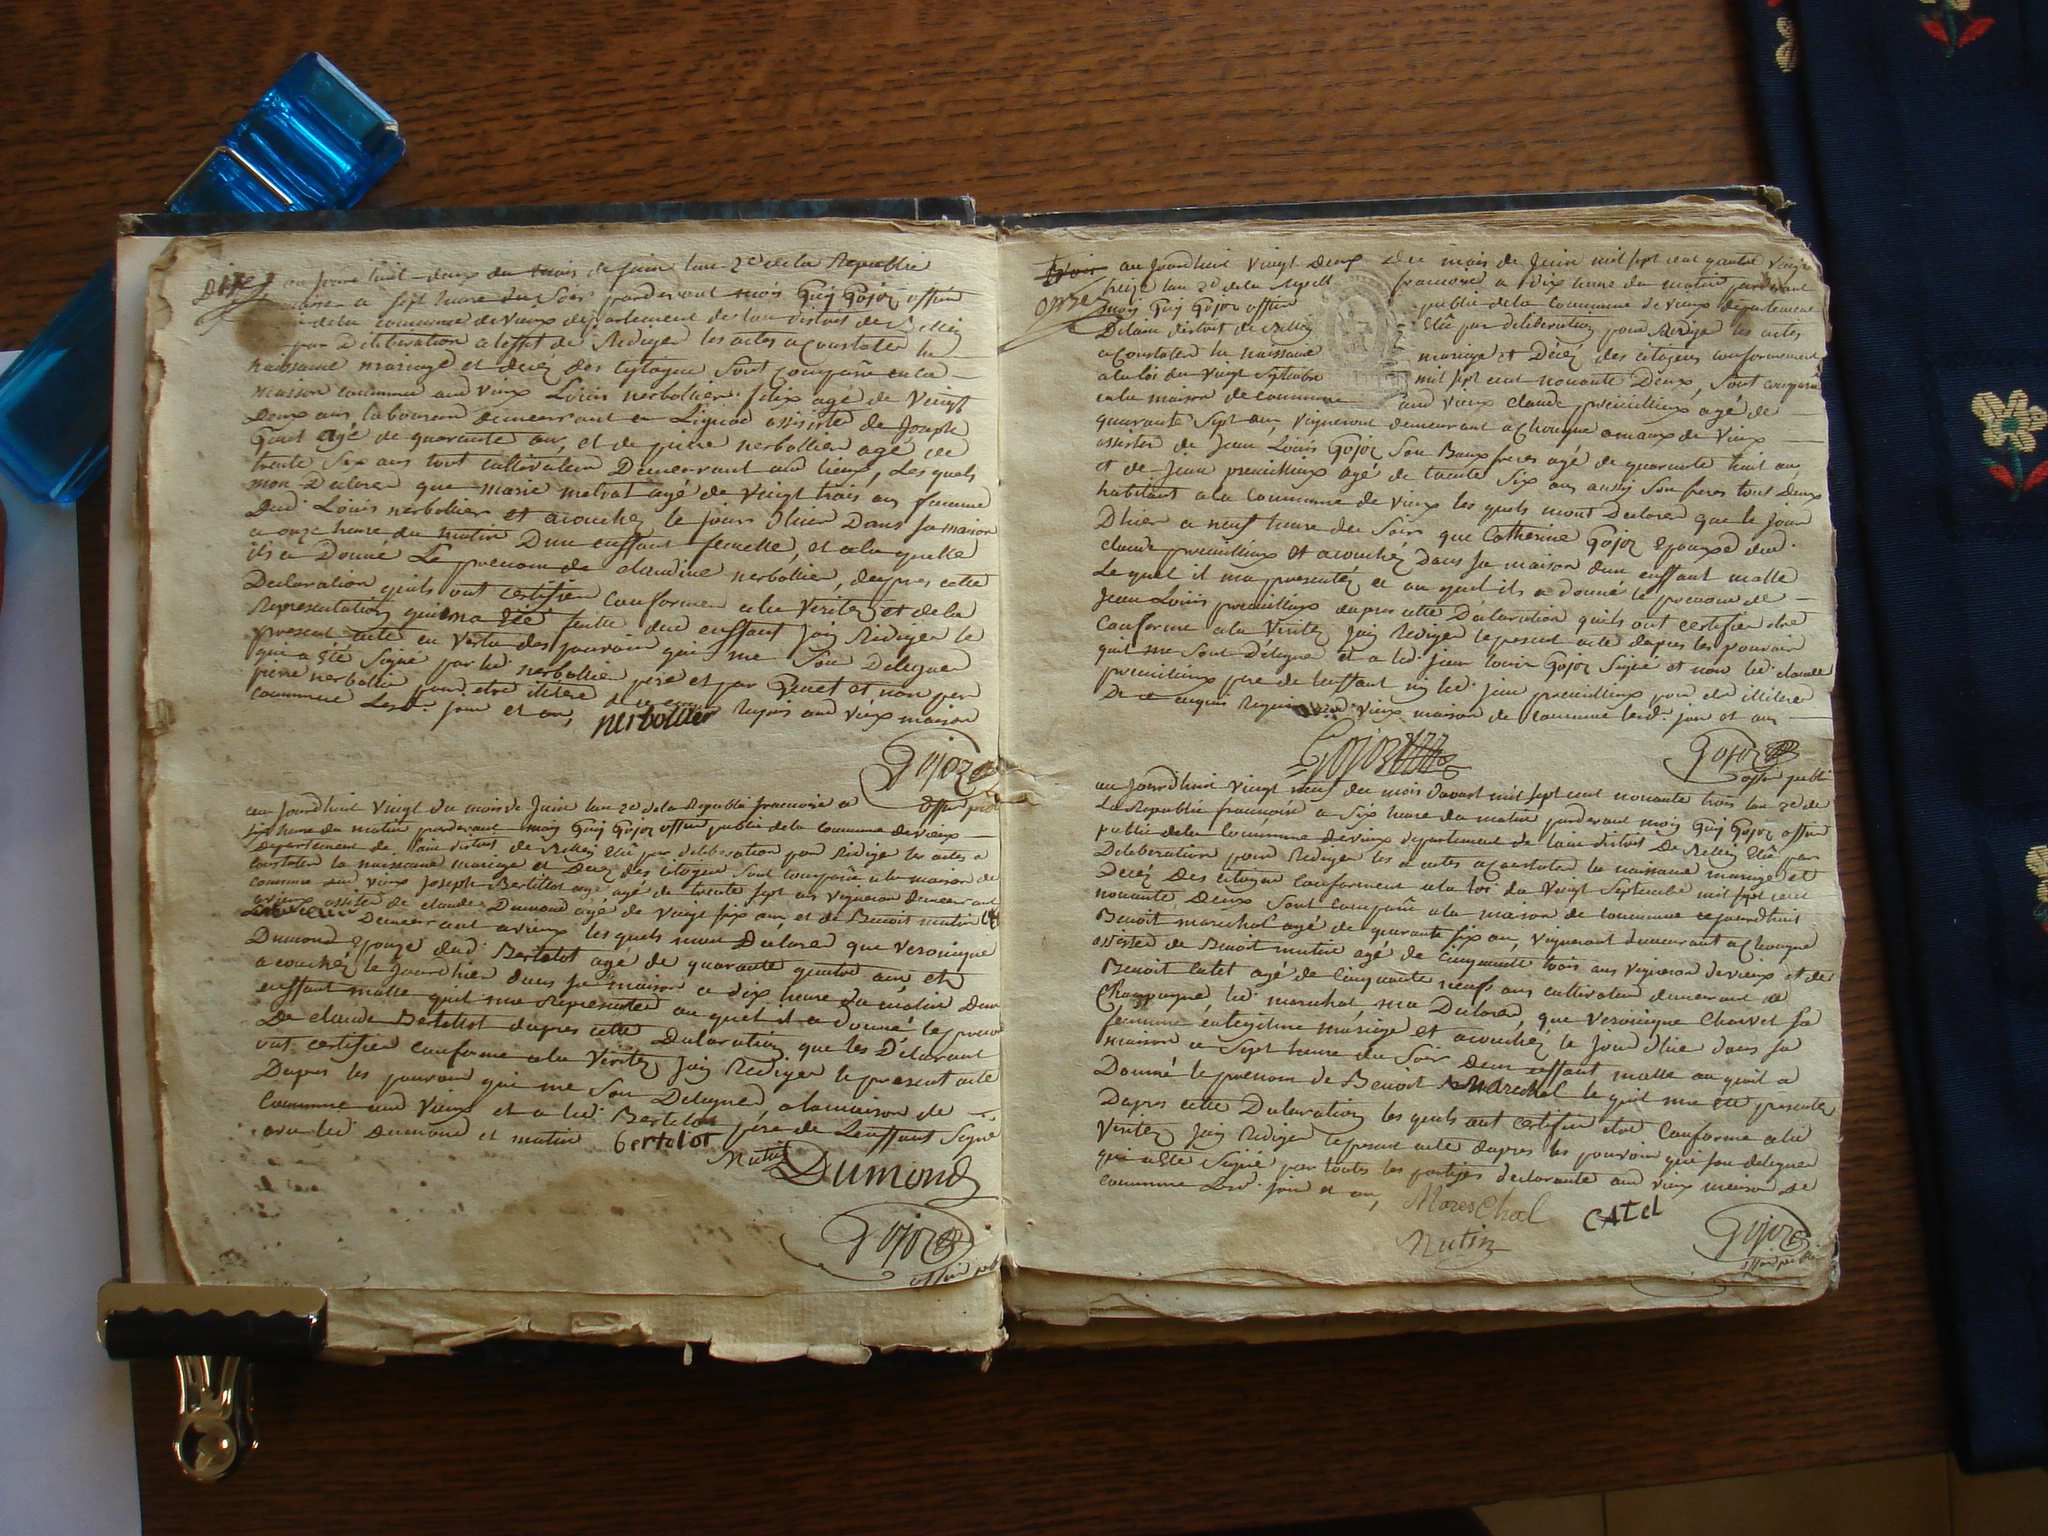 Dixez au Jourdhuit deux du mois de Juin lan 2e de la Republie
a sept heure du Soir pardevant mois Guy Gojoz offiēr
de la commune de vieux departement de lain distoit de Belley
par Deliberation a leffet de Rediger les actes a Constater la
naissance mariage et decéz des citoyens Sont comparu en la
maison commune aud vieux Louis nerbollier agé de Vingt
Deux ans laboureur demeurant en Lignod assisté de Joseph
Genet agé de quarante ans, et de pierre nerbollier agé de
trente Six ans tout cultivateur Demeurant aud lieux, Les quels
mon Declarer que marie agé de Vingt trois ans femme
Dud. Louis nerbollier et acouchez le jour Dhier Dans sa maison
a onze heure du matin Dun enffant femelle, et a la quelle
ils a Donné Le prenom de claudine nerbollier, depres cette
Declaration quils ont certifien conformer a la Veritez et de la
Representation qui ma été faitte dud enffant Jaiy Rediger le
present acte en Vertu des pouvoir qui me Son Deleguer
qui a été Signé par led. nerbollier pere et par Genet et non par
pierre nerbollier pour etre illitere
commune Lesd. Jour et an, nerbollier aud vieux maison
Gojoz
offiēr pub
au Jourdhuit Vingt du mois de Juin lan 2e de la Republi francoise a
Six heure du matin pardevant moiy Guy Gojoz offiēr public de la commune de vieux
departement de lain distoit de Belley Elû par deliberation pour Rediger les actes a
Constater la naissance mariage et Decéz des citoyens Sont comparû a la maison de
commune aud vieux Joseph Bertellot agé de trente sept ans vigneron demeurant
a vieux assister de claude Dumond agé de Vingt six ans et de Benoit mutin
Demeurant a vieux les quels mon Declarer que Veronique
Dumond Epouze dud. Bertelot agé de quarante quatre ans et
acouchéz le Jourdhier dans sa maison a dix heure du matin Dun
enffant malle quil ma Representer au quel il a donné le prenom
De claude Bertellot depres cette Declaration que les Declarant
ont certifien conforme a la Veritez Jaiy Rediger le present acte
Dapres les pouvoir qui me Son Deleguer, a la maison de
commune aud Vieux et a led. Bertelot pere de Lenffant Signé
avec led. Dumond et mutin bertelot
Mutin DUMOND
Gojoz
offiēr pub
onzez au Jourdhuit vingt Deux du mois de Juin mil sept cent quatre Vingt
treize lan 2e de la Repub francoise a dix heure du matin pardevant
moiy Guy Gojoz offiēr public de la commune de vieux departement
De lain distoit de Belley Elû par deliberation pour Rediger les actes
a Constater la naissance mariage et Decéz des citoyens conformement
a la loi du vingt Septembre mil sept cent nonante Deux, Sont comparu
en la maison de commune aud vieux claude premillieux agé de
quarante Sept ans, vigneront demeurant a Chongne amaux de Vieux
assister de Jean Louis Gojoz Son Baux freres agé de quarante huit ans
et de Jean premillieux agé de trente Six ans aussy Son freres tout deux
habitant a la commune de vieux les quels mont Declarer que le Jour
Dhier a neuf heure du Soir que Catherine Gojoz Epouze dud.
claude premillieux et acouchéz dans sa maison dun enffant malle
Le quel il ma presentéz et au quel ils a donné le prenom de
Jean Louis premillieux dapres cette Declaration quils ont certifier etre
Conforme a la Veritez Jaiy Rediger le present acte depres les pouvoir
qui me Sont Deleguer et a led. Jean Louis Gojoz Signé et non led. claude
premillieux pere de Lenffant ny led. Jean premillieux pour etre illitere
De ce enquis Requis aud. Vieux maison de commune lesd. jour et an
Gojoz
Gojoz
offiēr public
au Jourdhuit Vingt neuf du mois davoust mil sept cent nonante trois lan 2e de
La Republi francoise a Six heure du matin pardevant moiy Guy Gojoz offiēr
public de la commune de vieux departement de lain distoit de Belley Elû par
Deliberation pour Rediger les actes a Constater la naissance mariage et
Decéz Des citoyens conforment a la loi du Vingt Septembre mil sept cent
nonante Deux Sont comparû a la maison de commune ce jourdhuit
Benoit marechal agé de quarante six ans, Vigneront demeurant a Chongne
assister de Benoit mutin agé de cinquante trois ans vigneron de vieux et de
Benoit Catel agé de cinquante neufs ans cultivateur demeurant a
Champagne led. marechal, ma Declarer, que veronique Charvet Sa
femme en legitime mariage et acouchéz le Jour Dhier dans sa
maison a Sept heure du Soir dun enffant malle au quel il a
Donné le prenom de Benoit Marechal le quel ma été presenter
Dapres cette Declaration les quels ont certifier etre Conforme a la
Veritez Jaiy Rediger le present acte dapres les pouvoir qui son deleguer
qui a été Signé par toutes les partyes declarante aud vieux maison de
commune Lesd. jour et an, MaresChal CATel
Mutin Gojoz
offiēr public